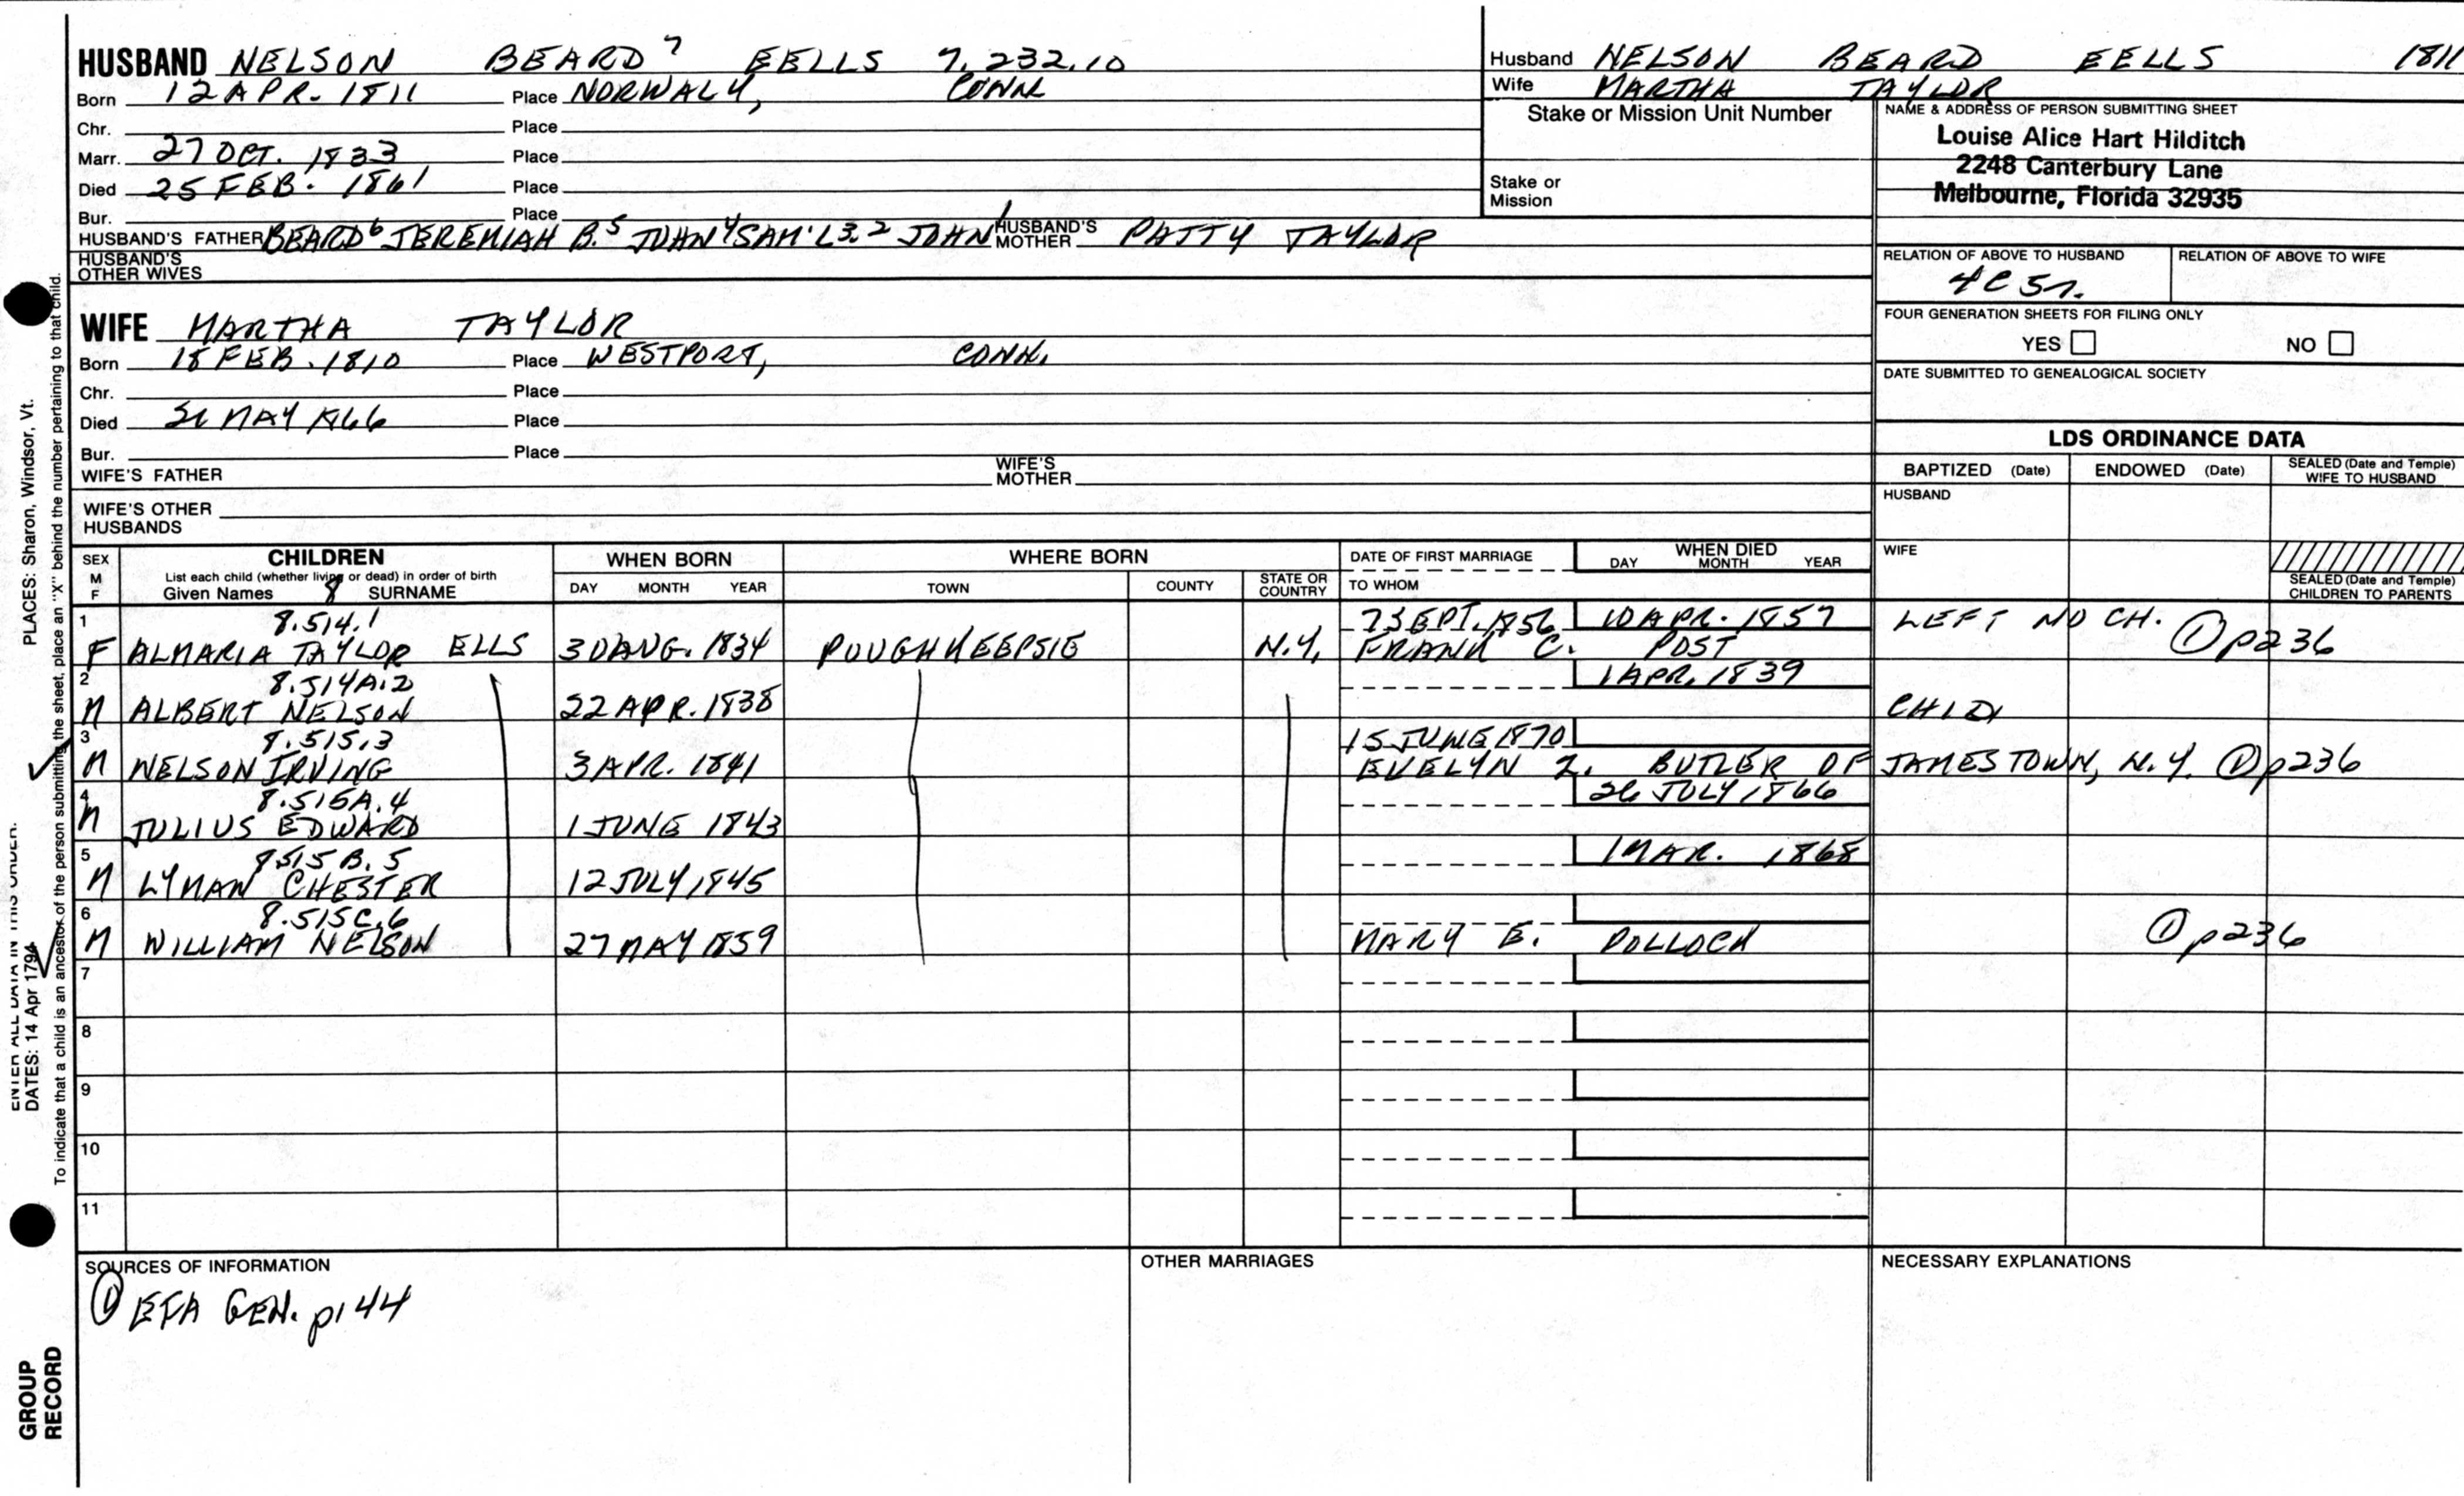 HUSBAND NELSON BEARD 7 EELLS 7.232.10
Born 12 APR. 1811 Place NORWALK, CONN
Chr. Place
Marr. 27 OCT. 1833 Place
Died 25 FEB. 1861 Place
Bur. Place
HUSBAND'S FATHER BEARD 6 JEREMIAH B. 5 JOHN 4 SAM'L 3. 2 JOHN 1 HUSBAND'S MOTHER PATTY TAYLOR
HUSBAND'S OTHER WIVES
Husband NELSON BEARD EELLS 1811
Wife MARTHA TAYLOR
Stake or Mission Unit Number
Stake or Mission
NAME & ADDRESS OF PERSON SUBMITTING SHEET
Louise Alice Hart Hilditch
2248 Canterbury Lane
Melbourne, Florida 32935
RELATION OF ABOVE TO HUSBAND RELATION OF ABOVE TO WIFE
4C 5r.
FOUR GENERATION SHEETS FOR FILING ONLY
YES NO
DATE SUBMITTED TO GENEALOGICAL SOCIETY
WIFE MARTHA TAYLOR
Born 18 FEB. 1810 Place WESTPORT, CONN.
Chr. Place
Died MAY 1866 Place
Bur. Place
WIFE'S FATHER WIFE'S MOTHER
WIFE'S OTHER HUSBANDS
LDS ORDINANCE DATA
BAPTIZED (Date) ENDOWED (Date) SEALED (Date and Temple) WIFE TO HUSBAND
HUSBAND
WIFE
SEALED (Date and Temple) CHILDREN TO PARENTS
SEX M F
CHILDREN
List each child (whether living or dead) in order of birth
Given Names 8 SURNAME
WHEN BORN
DAY MONTH YEAR
WHERE BORN
TOWN COUNTY STATE OR COUNTRY
DATE OF FIRST MARRIAGE
TO WHOM
WHEN DIED
DAY MONTH YEAR
1 8.514.1 7 SEPT. 1856 10 APR. 1857 LEFT NO CH. ① p236
F ALMARIA TAYLOR ELLS 30 AUG. 1834 POUGHKEEPSIE N.Y. FRANK C. POST
2 8.514A.2 1 APR. 1839
M ALBERT NELSON 22 APR. 1838 CHILD
3 8.515.3 15 JUNE 1870
M NELSON IRVING 3 APR. 1841 EVELYN Z. BUTLER OF JAMESTOWN, N.Y. ① p236
4 8.515A.4 26 JULY 1866
M JULIUS EDWARD 1 JUNE 1843
5 8515B.5 1 MAR. 1868
M LYMAN CHESTER 12 JULY 1845
6 8.515C.6
M WILLIAM NELSON 27 MAY 1859 MARY E. POLLOCK ① p236
7
8
9
10
11
SOURCES OF INFORMATION
① EFA GEN. p144
OTHER MARRIAGES
NECESSARY EXPLANATIONS
PLACES: Sharon, Windsor, Vt.
ENTER ALL DATA IN THIS ORDER:
DATES: 14 Apr 1794
To indicate that a child is an ancestor of the person submitting the sheet, place an "X" behind the number pertaining to that child.
GROUP
RECORD